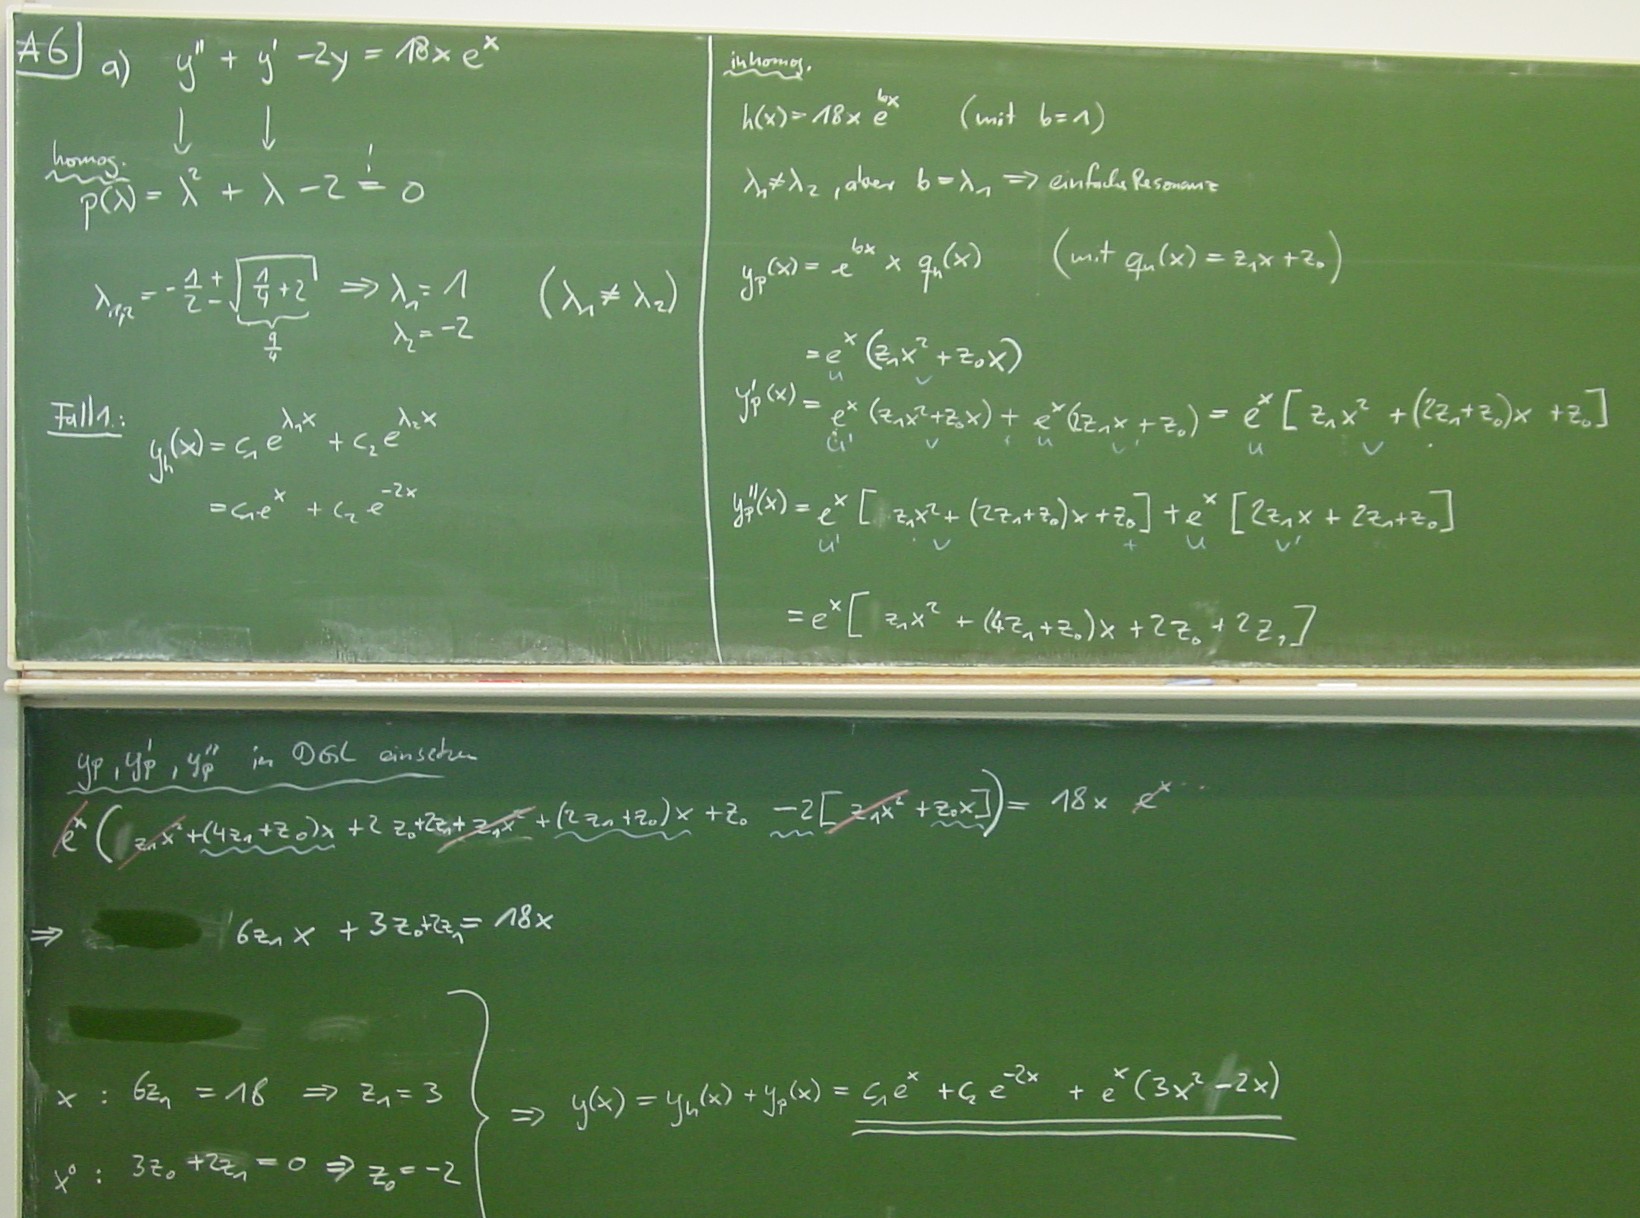 A6 a) y'' + y' - 2y = 18x eˣ
↓ ↓
homog.
p(λ) = λ² + λ - 2 =! 0
λ₁,₂ = -1/2 ± √(1/4 + 2) ⇒ λ₁ = 1 (λ₁ ≠ λ₂)
9/4 λ₂ = -2
Fall 1:
yₕ(x) = c₁ e^{λ₁x} + c₂ e^{λ₂x}
= c₁eˣ + c₂ e^{-2x}
inhomog.
h(x) = 18x e^{bx} (mit b = 1)
λ₁ ≠ λ₂, aber b = λ₁ ⇒ einfache Resonanz
yₚ(x) = e^{bx} x qₙ(x) (mit qₙ(x) = z₁x + z₀)
= eˣ (z₁x² + z₀x)
u v
y'ₚ(x) = eˣ (z₁x² + z₀x) + eˣ (2z₁x + z₀) = eˣ [z₁x² + (2z₁+z₀)x + z₀]
u' v u v' u v
y''ₚ(x) = eˣ [z₁x² + (2z₁+z₀)x + z₀] + eˣ [2z₁x + 2z₁+z₀]
u' v + u v'
= eˣ [z₁x² + (4z₁+z₀)x + 2z₀ + 2z₁]
yₚ, y'ₚ, y''ₚ in DGL einsetzen
eˣ (z₁x² + (4z₁+z₀)x + 2z₀+2z₁+z₁x² + (2z₁+z₀)x + z₀ -2[z₁x² + z₀x]) = 18x eˣ
⇒ 6z₁x + 3z₀+2z₁ = 18x
x : 6z₁ = 18 ⇒ z₁ = 3
x⁰ : 3z₀ + 2z₁ = 0 ⇒ z₀ = -2
⇒ y(x) = yₕ(x) + yₚ(x) = c₁eˣ + c₂ e^{-2x} + eˣ (3x² - 2x)